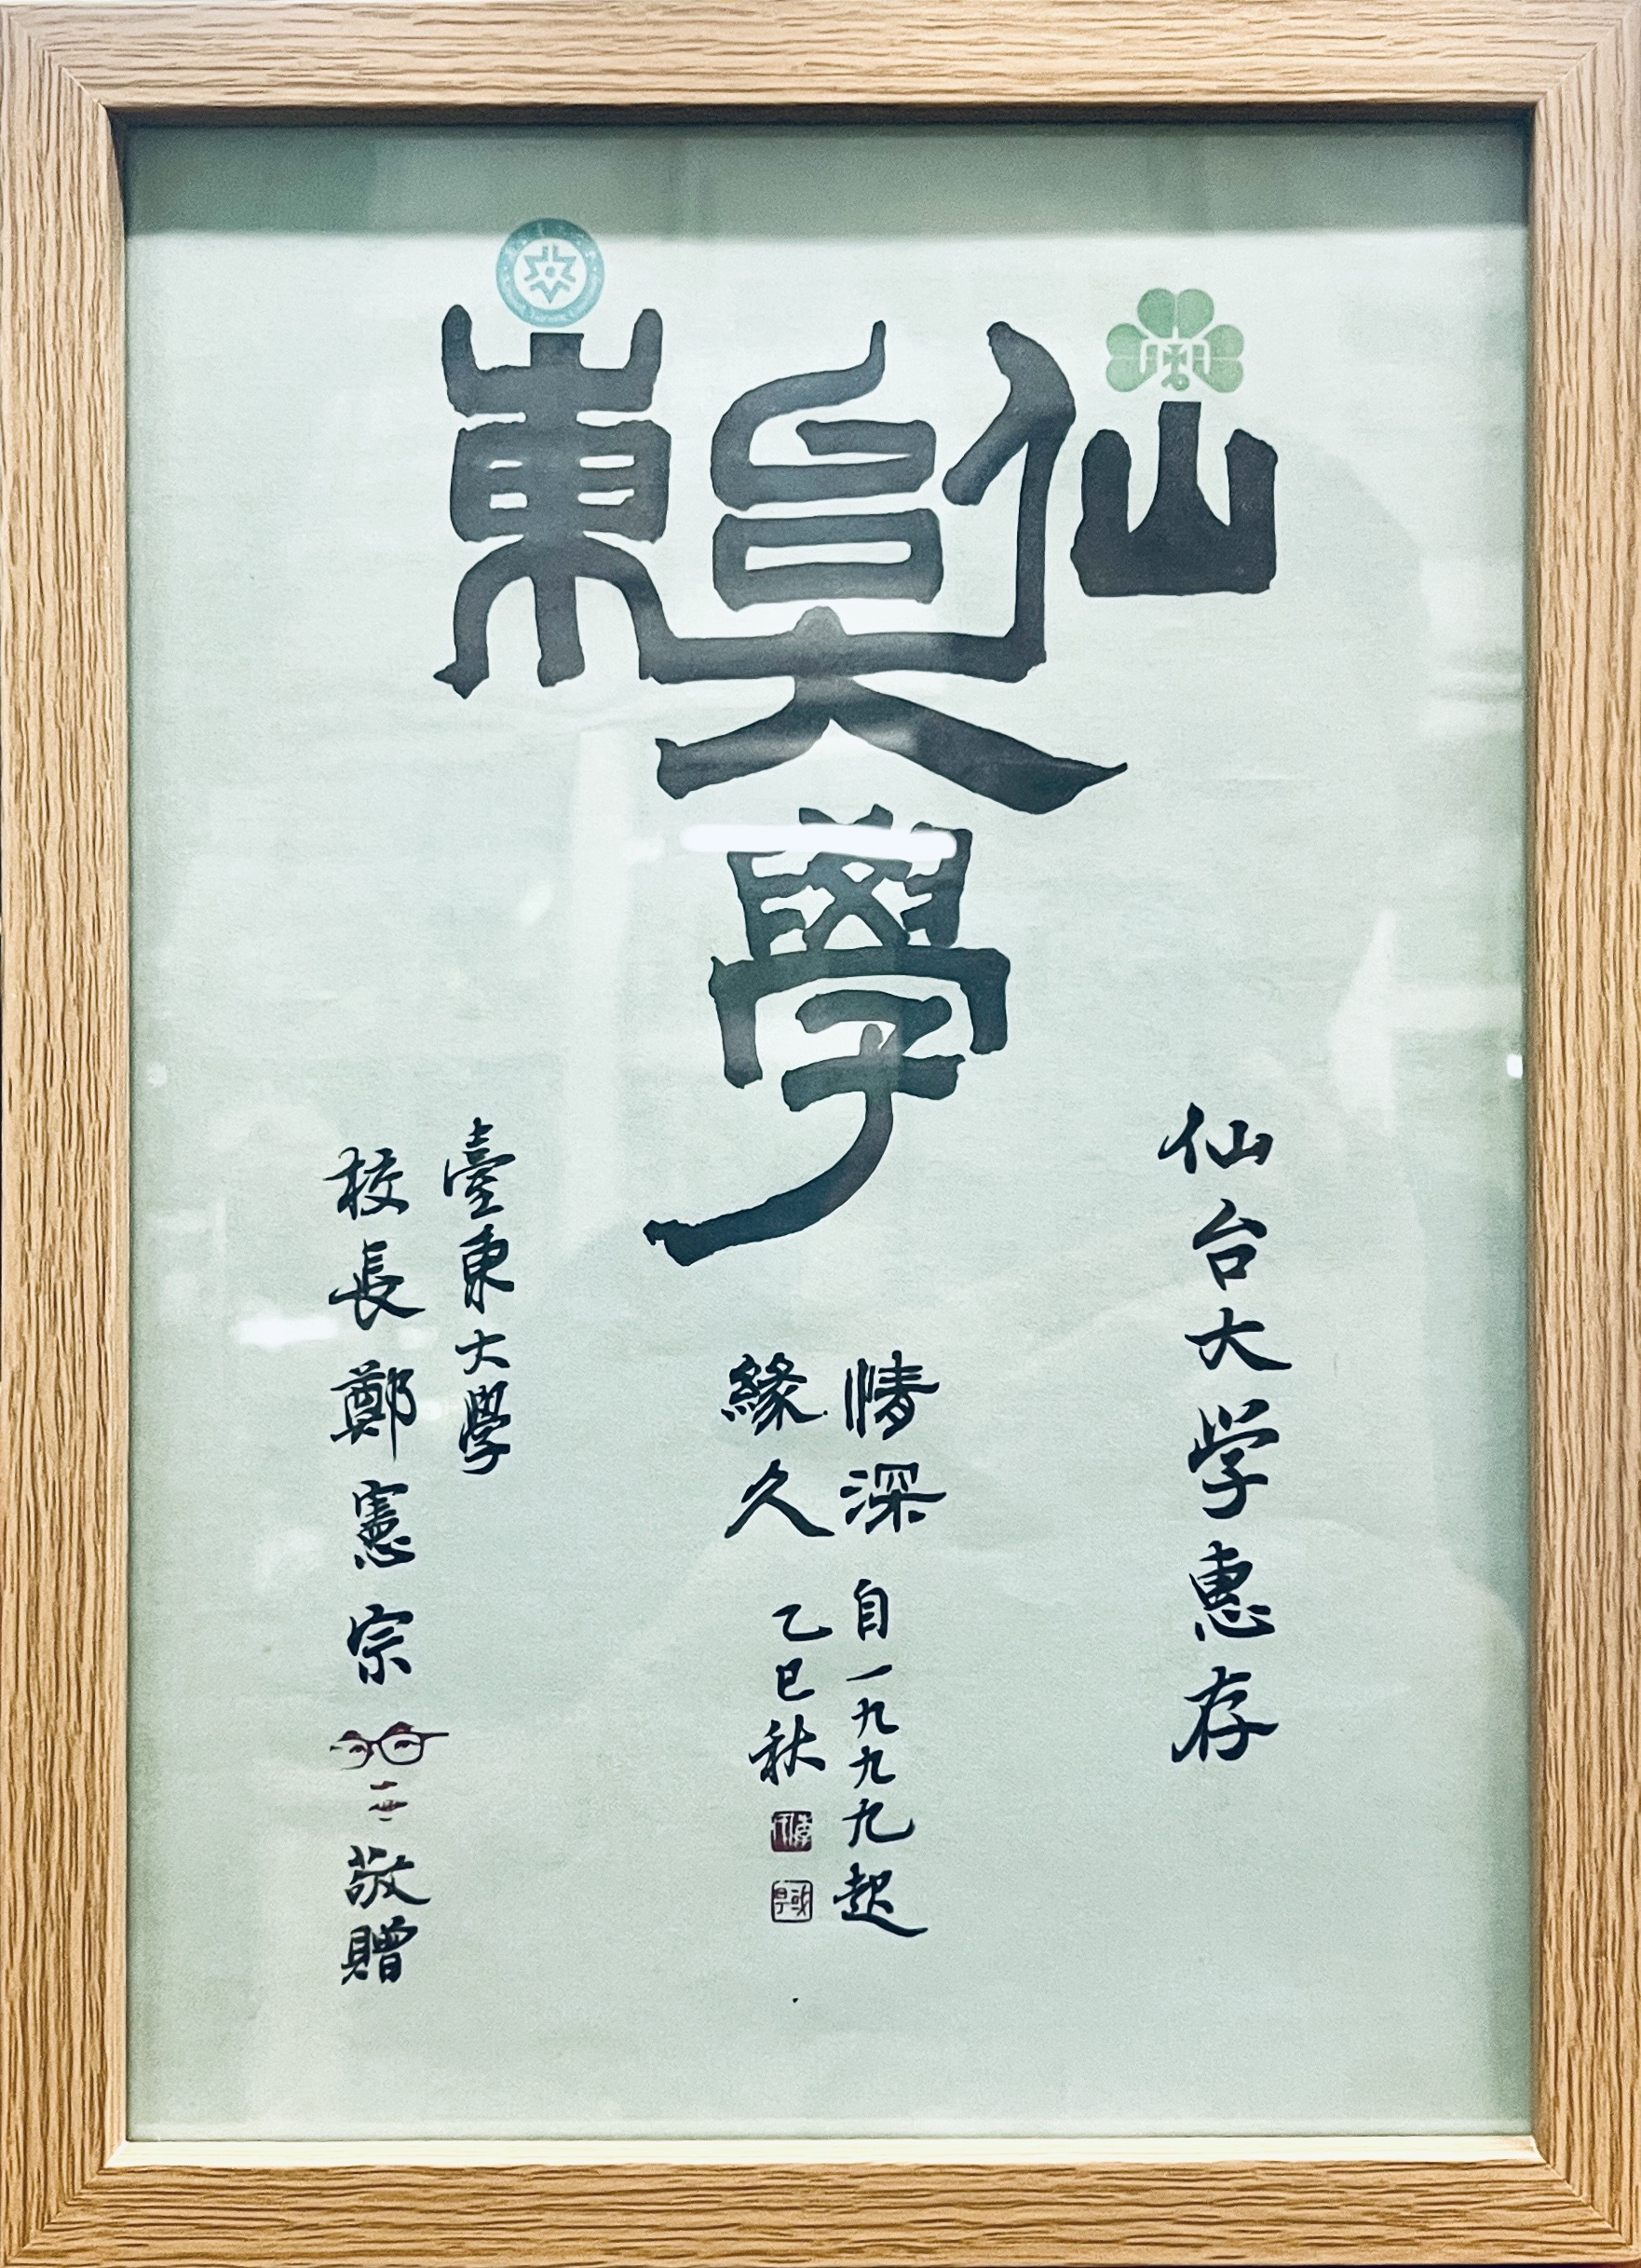 仙台東
大
學
仙台大学惠存
情深 自一九九九起
緣久 乙巳秋
臺東大學
校長鄭憲宗 敬贈